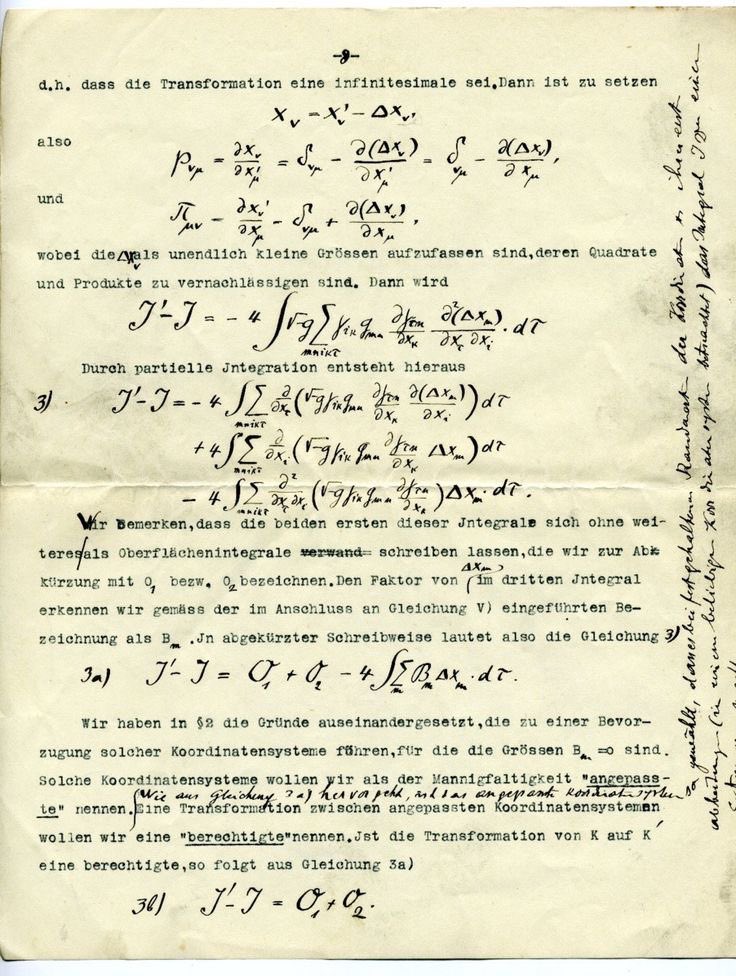 -8-
d.h. dass die Transformation eine infinitesimale sei.Dann ist zu setzen
x_ν = x_ν' − Δx_ν,
also
p_νμ = ∂x_ν/∂x_μ' = δ_νμ − ∂(Δx_ν)/∂x_μ' = δ_νμ − ∂(Δx_ν)/∂x_μ,
und
π_μν = ∂x_ν'/∂x_μ = δ_νμ + ∂(Δx_ν)/∂x_μ,
wobei die Δx_ν als unendlich kleine Grössen aufzufassen sind,deren Quadrate
und Produkte zu vernachlässigen sind. Dann wird
J'−J = − 4 ∫√-g Σ_mnikτ γ_ik g_mn ∂γ_τn/∂x_κ ∂²(Δx_m)/∂x_τ ∂x_i · dτ
Durch partielle Jntegration entsteht hieraus
3) J'−J = − 4 ∫Σ_mnikτ ∂/∂x_τ (√-g γ_ik g_mn ∂γ_τn/∂x_κ ∂(Δx_m)/∂x_i) dτ
+ 4 ∫Σ_mnikτ ∂/∂x_i (√-g γ_ik g_mn ∂γ_τn/∂x_κ Δx_m) dτ
− 4 ∫Σ_mnikτ ∂²/∂x_τ ∂x_i (√-g γ_ik g_mn ∂γ_τn/∂x_κ) Δx_m · dτ.
Wir bemerken,dass die beiden ersten dieser Jntegrale sich ohne wei-
teres als Oberflächenintegrale verwand= schreiben lassen,die wir zur Ab-
kürzung mit O_1 bezw. O_2 bezeichnen.Den Faktor von Δx_m im dritten Jntegral
erkennen wir gemäss der im Anschluss an Gleichung V) eingeführten Be-
zeichnung als B_m .Jn abgekürzter Schreibweise lautet also die Gleichung 3)
3a) J'−J = O_1 + O_2 − 4 ∫Σ_m B_m Δx_m · dτ.
Wir haben in §2 die Gründe auseinandergesetzt,die zu einer Bevor-
zugung solcher Koordinatensysteme führen,für die die Grössen B_m =o sind.
Solche Koordinatensysteme wollen wir als der Mannigfaltigkeit "angepass-
Wie aus Gleichung 3a) hervorgeht, ist das angepasste Koordinatensystem
te" nennen. Eine Transformation zwischen angepassten Koordinatensystemen
wollen wir eine "berechtigte"nennen.Jst die Transformation von K auf K'
eine berechtigte,so folgt aus Gleichung 3a)
3b) J'−J = O_1 + O_2.
so gewählt, dass bei festgehaltenen Randwerten der Koordinaten ihrer erst
Ableitungen (in einem beliebigen Koordinatensystem betrachtet) das Integral J